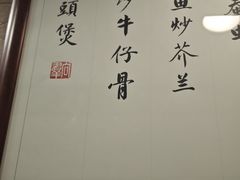 魚炒芥兰
炒牛仔骨
頭煲